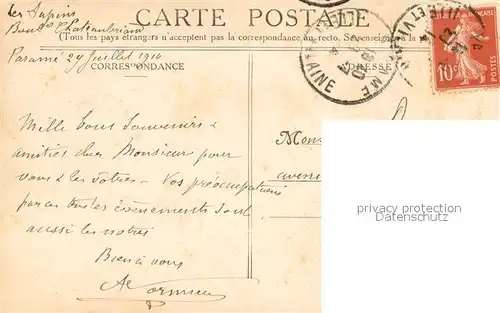 les Sapins
CARTE POSTALE
Boulᵈ Chateaubriand
Tous les pays étrangers n'acceptent pas la correspondance au recto. Se renseigner à la
Paramé 29 Juillet 1914
CORRESPONDANCE
ADRESSE
ILLE-ET-VILAINE
10ᶜ
POSTES
Mille bons souvenirs &
amitiés cher Monsieur pour
vous & les vôtres - Vos préoccupations
par ces tous les évènements sont
aussi les nôtres
Bien à vous
Mon
avenue
privacy protection
Datenschutz